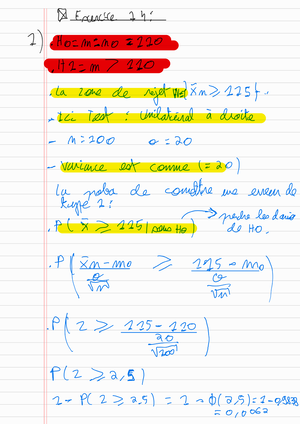 Exercice 24:
1) . H0 = m = m0 = 110
. H1 = m > 110
. La zone de rejet W = { X̄n ≥ 115 } .
. Ici Test : Unilatéral à droite
- n = 100 σ = 20
- variance est connue (= 20)
La proba de comettre une erreur de
type 1 :
. P( X̄ ≥ 115 | sous H0 ) → prendre les données
de H0.
. P( (X̄n - m0) / (σ/√n) ≥ (115 - m0) / (σ/√n) )
. P( Z ≥ (115 - 110) / (20/√100) )
P( Z ≥ 2,5 )
1 - P( Z ≥ 2,5 ) = 1 - Φ(2,5) = 1 - 0,9938
= 0,0062